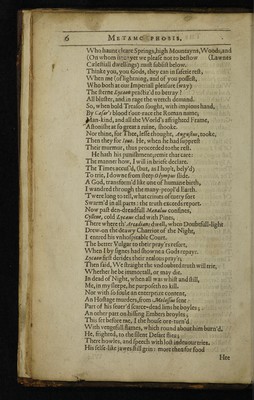 6 METAMORPHOSIS.
Who haunt cleare Springs, high Mountaynes, Woods, and
(On whom since yet we please not to bestow (Lawnes
Cœlestiall dwellings) must subsist below.
Thinke you, you Gods, they can in safetie rest,
When me (of lightning, and of you possest,
Who both at our Imperiall pleasure sway)
The sterne Lycaon practis'd to betray?
All bluster, and in rage the wretch demand.
So, when bold Treason sought, with impious hand,
By Cæsar's blood t'out-race the Roman name;
Man-kind, and all the World's affrighted Frame,
Astonisht at so great a ruine, shooke.
Nor thine, for Thee, lesse thought, Augustus, tooke,
Then they for Jove. He, when he had supprest
Their murmur, thus proceeded to the rest.
He hath his punishment; remit that care:
The manner how, I will in briefe declare.
The Times accus'd, (but, as I hop't, bely'd)
To trie, I downe from steep Olympus slide.
A God, transform'd like one of humane birth,
I wandred through the many-peopl'd Earth.
'Twere long to tell, what crimes of every sort
Swarm'd in all parts: the truth exceeds report.
Now past den-dreadfull Mænalus confines,
Cyllene, cold Lycæus clad with Pines,
There where th' Arcadians dwell, when Doubtfull-light
Drew-on the deawy Charriot of the Night,
I entred his unhospitable Court.
The better Vulgar to their pray'rs resort,
When I by signes had showne a Gods repayr.
Lycaon first derides their zealous pray'r;
Then said, We straight the undoubted truth will trie,
Whether he be immortall, or may die.
In dead of Night, when all was whist and still,
Me, in my sleepe, he purposeth to kill.
Nor with so foule an enterprize content,
An Hostage murders, from Molossia sent:
Part of his sever'd scarce-dead lims he boyles;
An other part on hissing Embers broyles;
This set before me, I the house ore-turn'd
With vengefull flames, which round about him burn'd.
He, frighted, to the silent Desart flies;
There howles, and speech with lost indeavour tries.
His selfe-like jawes still grin: more than for food
Hee